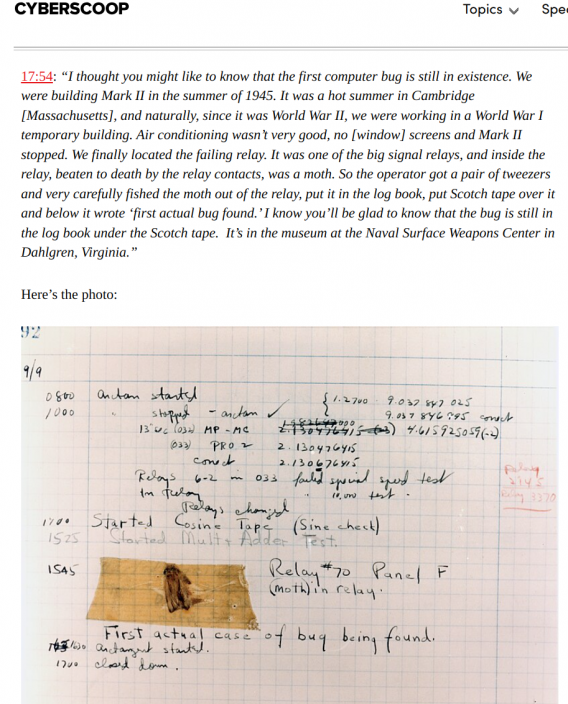 CYBERSCOOP
Topics
Spe
17:54: “I thought you might like to know that the first computer bug is still in existence. We
were building Mark II in the summer of 1945. It was a hot summer in Cambridge
[Massachusetts], and naturally, since it was World War II, we were working in a World War I
temporary building. Air conditioning wasn’t very good, no [window] screens and Mark II
stopped. We finally located the failing relay. It was one of the big signal relays, and inside the
relay, beaten to death by the relay contacts, was a moth. So the operator got a pair of tweezers
and very carefully fished the moth out of the relay, put it in the log book, put Scotch tape over it
and below it wrote ‘first actual bug found.’ I know you’ll be glad to know that the bug is still in
the log book under the Scotch tape.  It’s in the museum at the Naval Surface Weapons Center in
Dahlgren, Virginia.”
Here’s the photo:
92
9/9
0800 started
{ 1.2700 9.037 847 025
1000 " stopped - ✓ 9.037 846 995
(032) MP - MC 4.615925059(-2)
(033) PRO 2 2.130476415
2.130676415
Relays 6-2 in 033 failed special speed test
in relay " 10,000 test.
Relays changed
Started Cosine Tape (Sine check)
1525 Started Mult + Adder Test.
Relay
Relay 3370
1545 Relay #70 Panel F
(moth) in relay.
First actual case of bug being found.
started.
1700 closed down.